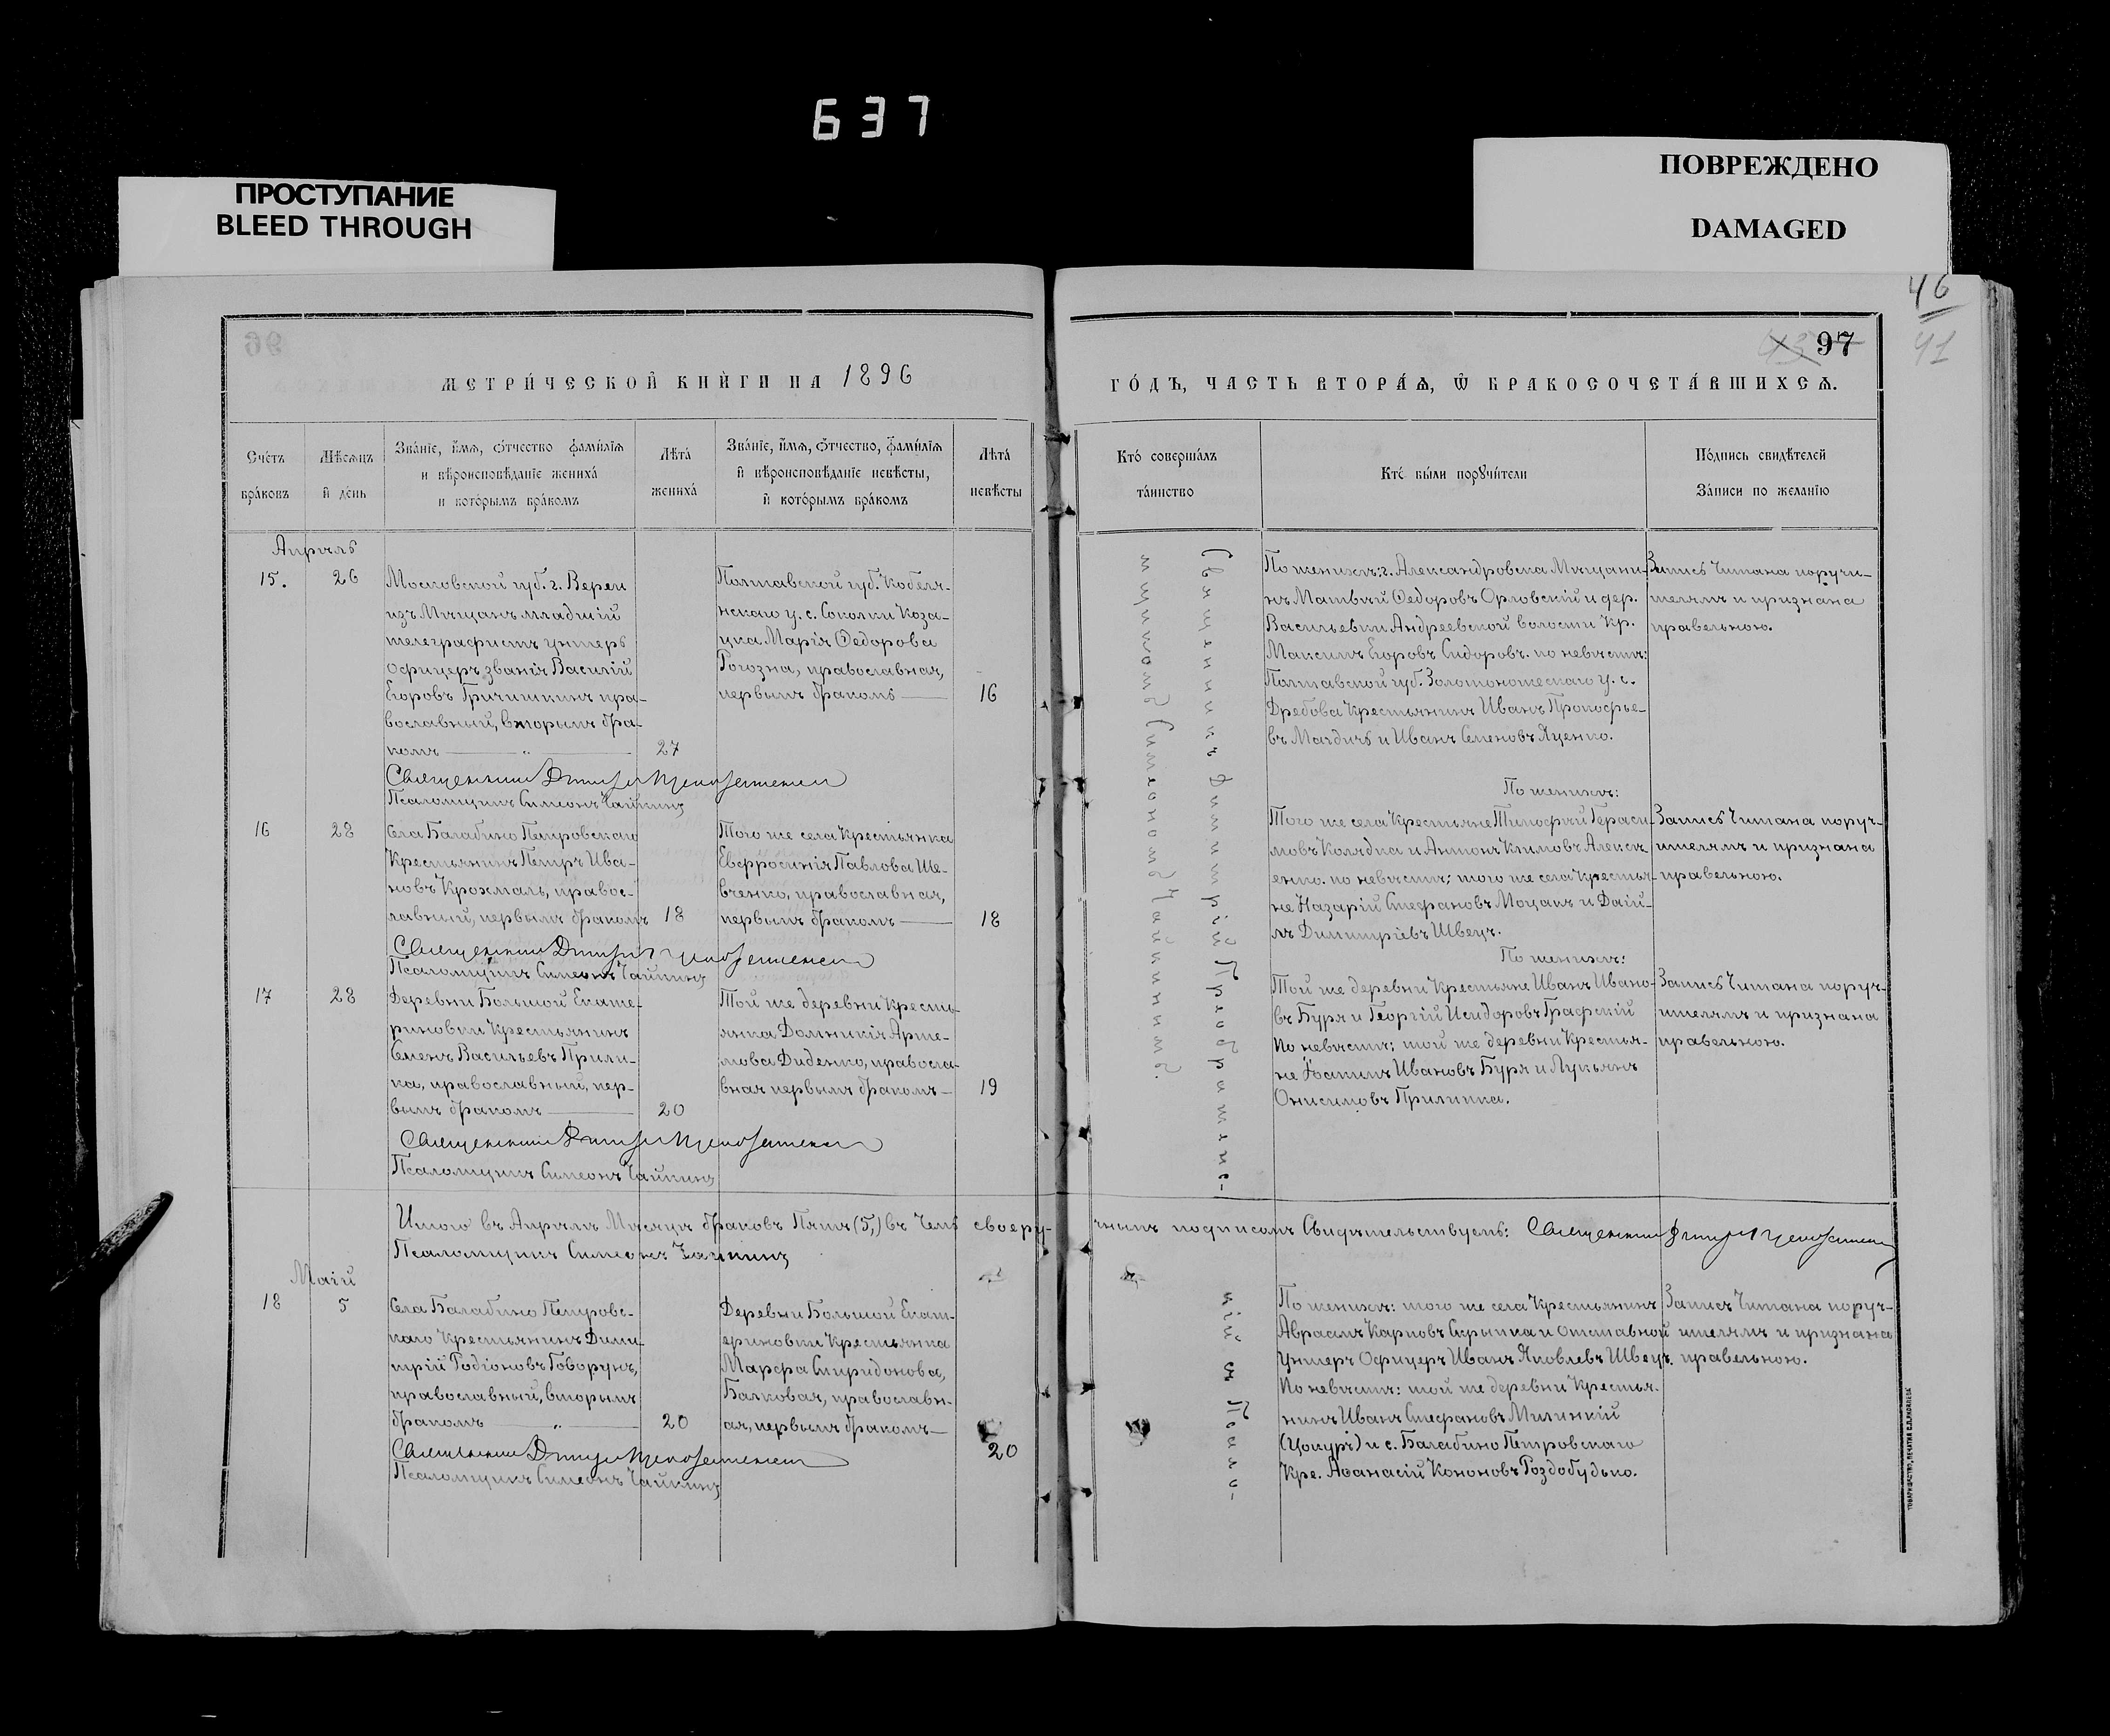 637
ПРОСТУПАНИЕ
BLEED THROUGH
ПОВРЕЖДЕНО
DAMAGED
46
41
43 97
96
МЕТРИ́ЧЕСКОЙ КНИ́ГИ НА 1896
ГО́ДЪ, ЧАСТЬ ВТОРА́Ѧ, Ѽ БРАКОСОЧЕТА́ВШИХСѦ.
Сче́тъ
бра́ковъ
Мѣ́сѧцъ
и҆ де́нь
Зва́нїе, и҆́мѧ, ѻ҆́тчество фами́лїѧ
и вѣроисповѣ́данїе жениха́
и кото́рымъ бра́комъ
Лѣта́
жениха́
Зва́нїе, и҆́мѧ, ѻ҆́тчество, фами́лїѧ
и҆ вѣроисповѣ́данїе невѣ́сты,
и҆ кото́рымъ бра́комъ
Лѣта́
невѣ́сты
Кто̀ соверша́лъ
та́инство
Кто̀ бы́ли порꙋчи́тели
По́дпись свидѣ́телей
За́писи по жела́нїю
Апрѣль
15.
26
Московской губ. г. Вереи
изъ Мѣщанъ младшій
телеграфистъ унтеръ
офицеръ званія Василій
Егоровъ Гричишкинъ пра-
вославный, вторымъ бра-
комъ — „ —
27
Полтавской губ. Кобеля-
нскаго у. с. Соколки Коза-
чка Марія Ѳедорова
Рогозна, православная,
первымъ бракомъ —
16
По женихѣ: г. Александровска Мѣщани-
нъ Матвѣй Ѳедоровъ Орловскій и дер.
Васильевки Андреевской волости Кр.
Максимъ Егоровъ Сидоровъ. по невѣстѣ:
Полтавской губ. Золотоношскаго у. с.
Дребова Крестьянинъ Иванъ Прокофье-
въ и Иванъ Семеновъ Яценко.
Запись читана поручи-
телямъ и признана
правельною.
Священникъ Димитрій Преображенскій
Псаломщикъ Симеонъ Чайкинъ
16
28
Села Балабино Петровскаго
Крестьянинъ Петръ Ива-
новъ Крохмаль, правос-
лавный, первымъ бракомъ
18
Того же села Крестьянка
Евфросинія Павлова Ше-
вченко, православная,
первымъ бракомъ —
18
По женихѣ:
Того же села Крестьяне Тимофѣй Гераси-
мовъ Колядка и Антонъ Климовъ Алекс
енко. по невѣстѣ; того же села Крестья-
не Назарій Стефановъ Моцакъ и Даній-
лъ Димитріевъ Швецъ.
Запись читана поруч-
ителямъ и признана
правельною.
Священникъ Димитрій Преображенскій
Псаломщикъ Симеонъ Чайкинъ
17
28
Деревни Большой Екате-
риновки Крестьянинъ
Семенъ Васильевъ Прили-
ка, православный, пер-
вымъ бракомъ —
20
Той же деревни Кресть-
янка Домникія Арте-
мова Диденко, правосла-
вная первымъ бракомъ —
19
По женихѣ:
Той же деревни Крестьяне Иванъ Ивано-
въ Буря и Георгій Исидоровъ Графскій
По невѣстѣ; той же деревни Крестья-
не Іоакимъ Ивановъ Буря и Лукьянъ
Онисимовъ Прилипка.
Запись читана поруч-
ителямъ и признана
правельною.
Священникъ Димитрій Преображенскій
Псаломщикъ Симеонъ Чайкинъ
Священникъ Димитрій Преображенс-
кій и Псало-
мщикомъ Симеономъ Чайкинымъ.
Итого въ Апрѣлѣ Мѣсяцѣ браковъ Пять (5,) въ чемъ своеру-чнымъ подписомъ Свидѣтельствуемъ: Священникъ Димитрій Преображенскій
Псаломщикъ Симеонъ Чайкинъ
Маій
18
5
Села Балабино Петровс-
каго Крестьянинъ Дими-
трій Родіоновъ Говорунъ,
православный, вторымъ
бракомъ — „ —
20
Деревни Большой Екат-
ериновки Крестьянка
Марфа Спиридонова,
Балковая, православн-
ая, первымъ бракомъ —
20
По женихѣ: того же села Крестьянинъ
Авраамъ Карповъ Скрыпка и Отставной
Унтеръ Офицеръ Иванъ Яковлевъ Швецъ.
По невѣстѣ: той же деревни Крестья-
нинъ Иванъ Стефановъ Милинкій
(Цокуръ) и с. Балабино Петровскаго
Кре. Аѳанасій Кононовъ Роздобудько.
Запись читана поруч-
ителямъ и признана
правельною.
Священникъ Димитрій Преображенскій
Псаломщикъ Симеонъ Чайкинъ